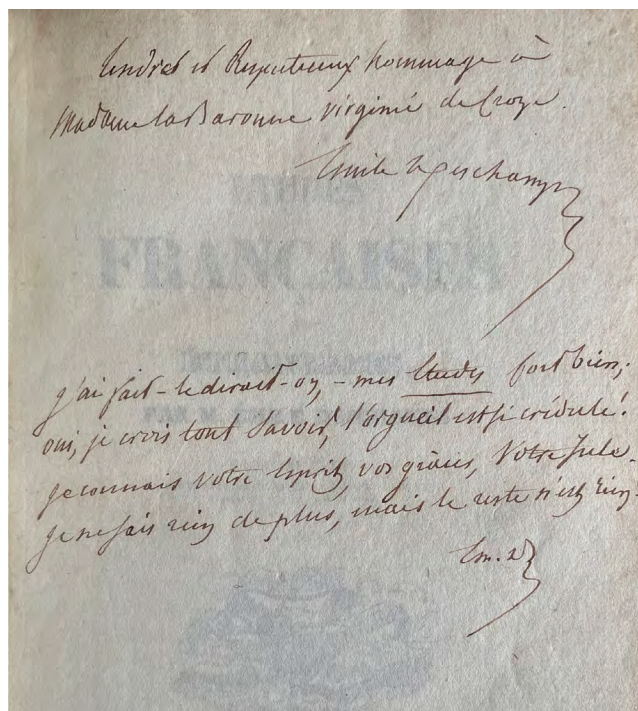 tendres et Respectueux hommage à
Madame la Baronne Virginie de Croze.
Emile Deschamps
FRANÇAISES
j'ai fait - le dirait-on, - mes Etudes fort bien;
oui, je crois tout savoir, l'orgueil est si crédule!
je connais votre Esprit, vos grâces, Votre Jule.
je ne sais rien de plus, mais le reste n'est rien.
Em. D